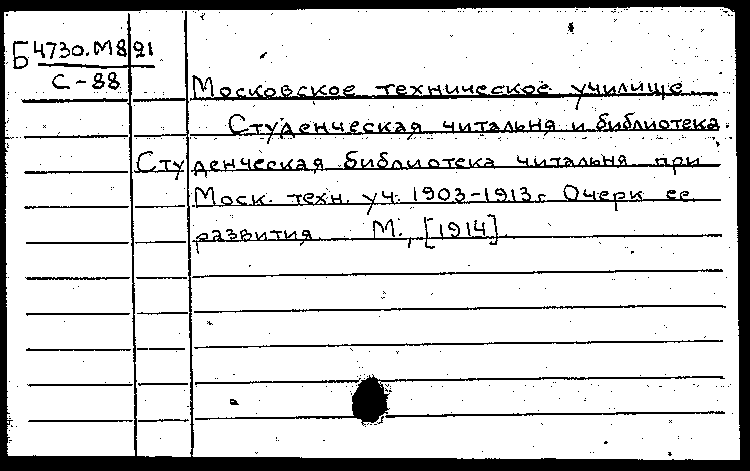 Б 4730.М8 21
С-88
Московское техническое училище
Студенческая читальня и библиотека.
Студенческая библиотека читальня при
Моск. техн. уч. 1903-1913 г. Очерк ее
развития М., [1914].